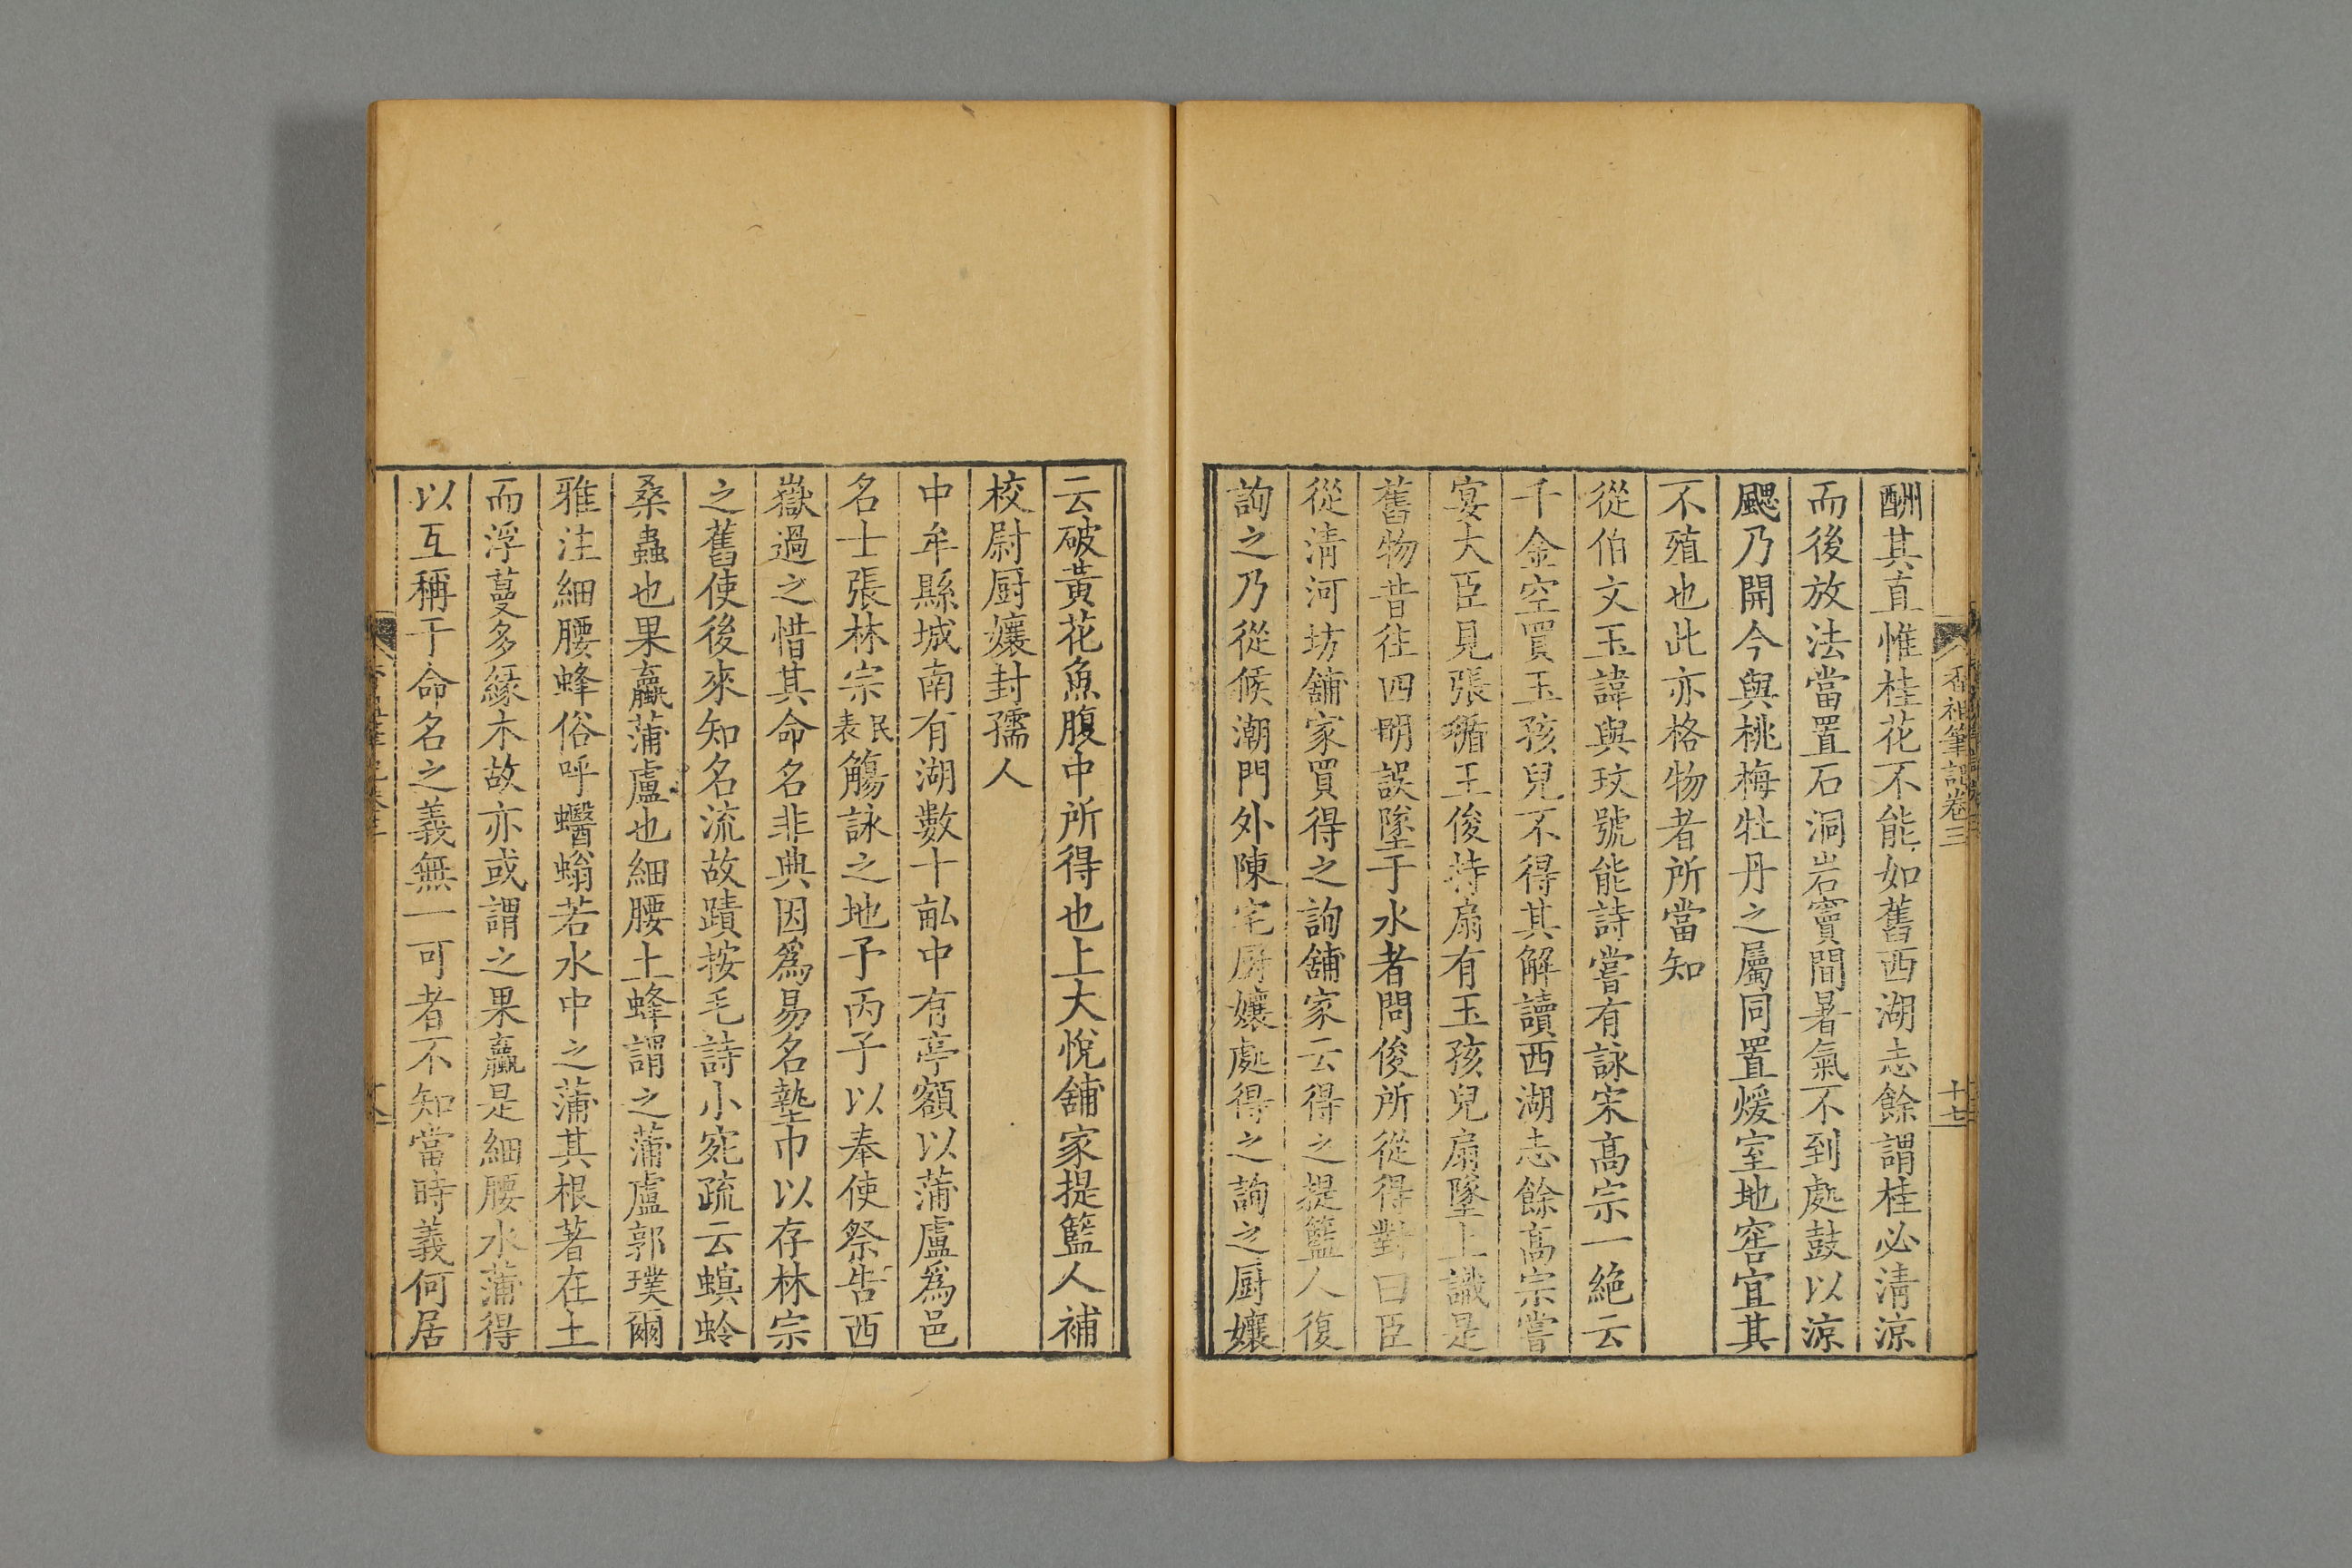 香祖筆記卷三
十七
酬其直惟桂花不能如舊西湖志餘謂桂必清凉
而後放法當置石洞岩竇間暑氣不到處鼓以凉
颸乃開今與桃梅牡丹之屬同置煖室地窖宜其
不殖也此亦格物者所當知
從伯文玉諱與玟號能詩嘗有詠宋高宗一絶云
千金空買玉孩兒不得其解讀西湖志餘高宗嘗
宴大臣見張循王俊持扇有玉孩兒扇墜上識是
舊物昔往四明誤墜于水者問俊所從得對曰臣
從清河坊舖家買得之詢舖家云得之提籃人復
詢之乃從候潮門外陳宅厨孃處得之詢之厨孃
云破黃花魚腹中所得也上大悅舖家提籃人補
校尉厨孃封孺人
中牟縣城南有湖數十畝中有亭額以蒲盧爲邑
名士張林宗民表觴詠之地予丙子以奉使祭告西
嶽過之惜其命名非典因爲易名墊巾以存林宗
之舊使後來知名流故蹟按毛詩小宛疏云螟蛉
桑蟲也果蠃蒲盧也細腰土蜂謂之蒲盧郭璞爾
雅注細腰蜂俗呼蠮螉若水中之蒲其根著在土
而浮蔓多緣木故亦或謂之果蠃是細腰水蒲得
以互稱于命名之義無一可者不知當時義何居